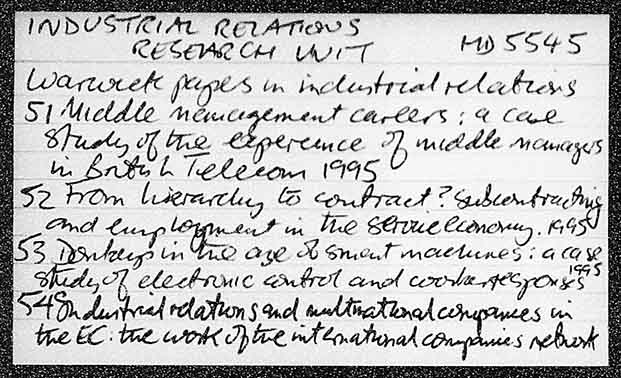 INDUSTRIAL RELATIONS
RESEARCH UNIT MD 5545
Warwick papers in industrial relations
51 Middle management careers: a case
study of the experience of middle managers
in British Telecom 1995
52 From hierarchy to contract? Subcontracting
and employment in the service economy. 1995
53 Donkeys in the age of smart machines: a case
study of electronic control and worker responses 1995
54 Industrial relations and multinational companies in
the EC: the work of the international companies network